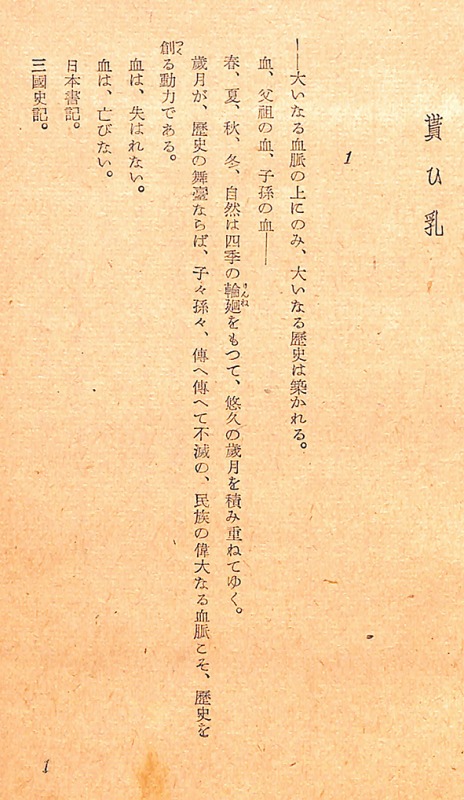 貰ひ乳
1
――大いなる血脈の上にのみ、大いなる歷史は築かれる。
血、父祖の血、子孫の血――
春、夏、秋、冬、自然は四季の輪廻をもつて、悠久の歲月を積み重ねてゆく。
りんね
歲月が、歷史の舞臺ならば、子々孫々、傳へ傳へて不滅の、民族の偉大なる血脈こそ、歷史を
創る動力である。
つく
血は、失はれない。
血は、亡びない。
日本書記。
三國史記。
1